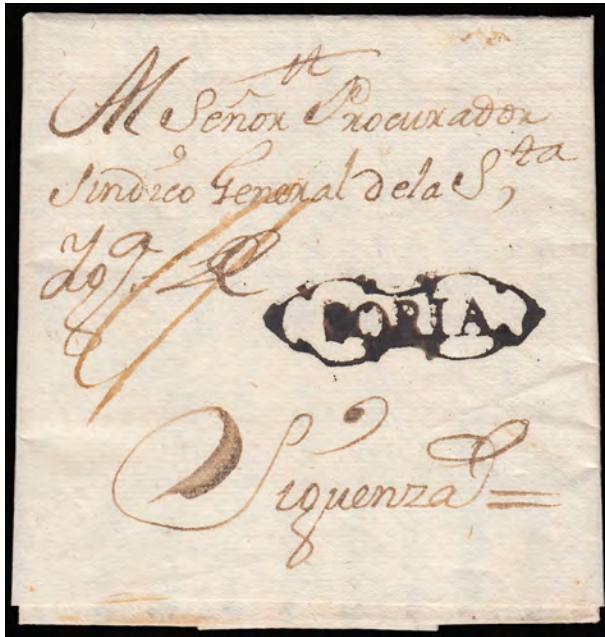 Al Señor Procurador
Sindico General de la S,ta
Yg.ª
SORIA
Siguenza